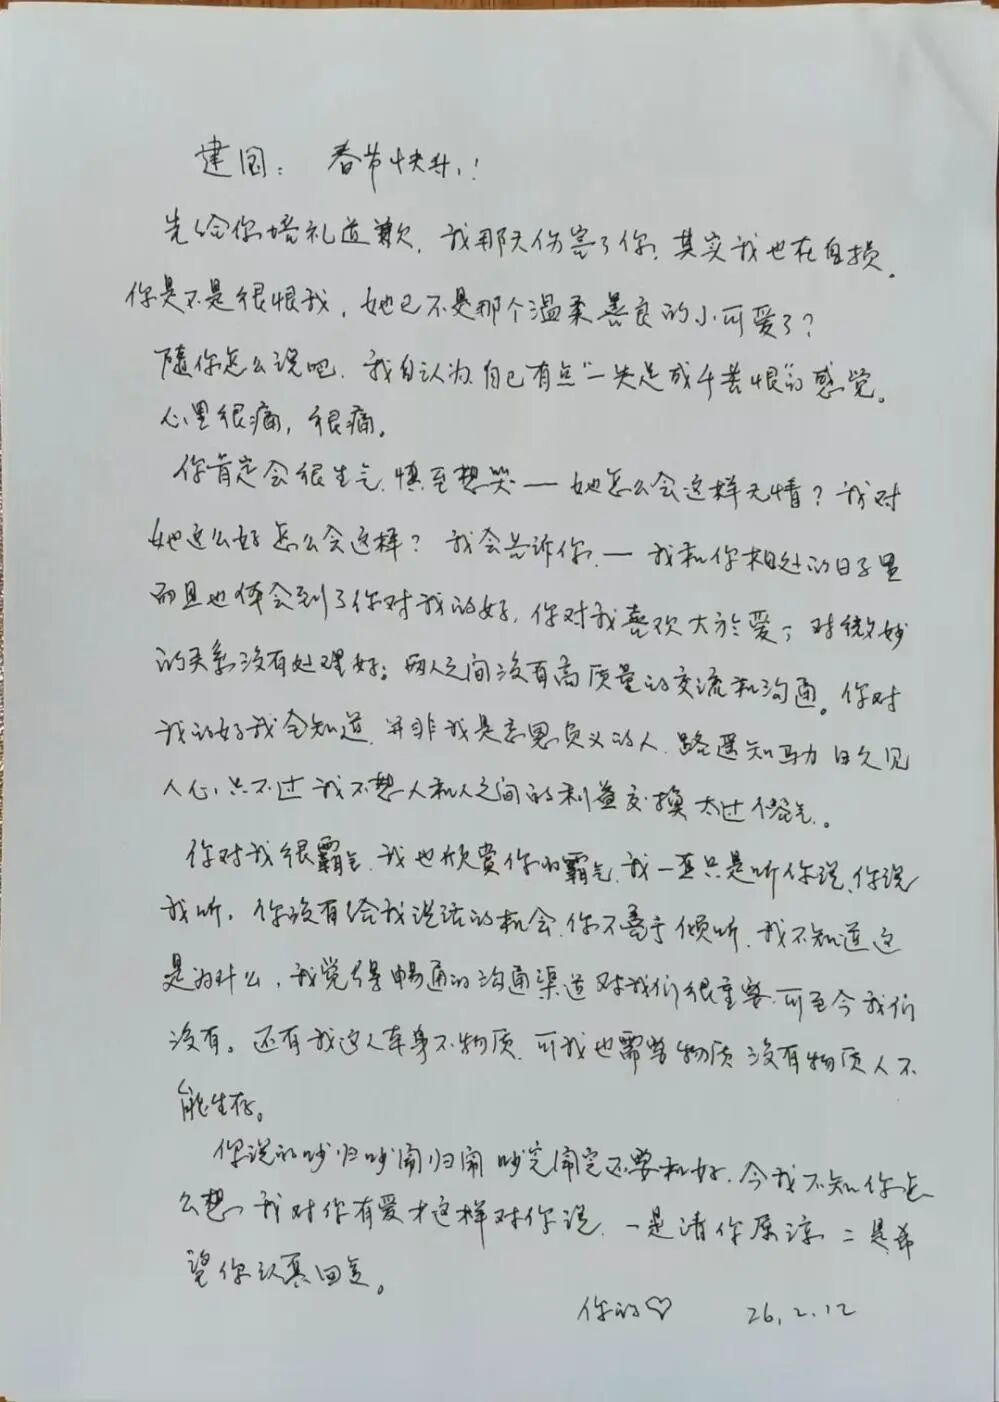 建国：春节快乐！
先给你赔礼道歉，我那天伤害了你，其实我也在自损。
你是不是很恨我，她已不是那个温柔善良的小可爱了？
随你怎么说吧，我自认为自己有点“一失足成千苦恨”的感觉。
心里很痛，很痛。
你肯定会很生气，慎至想哭——她怎么会这样无情？我对
她这么好怎么会这样？我会告诉你，——我和你相处的日子里
而且也体会到了你对我的好，你对我喜欢大於爱；对微妙
的关系没有处理好；两人之间没有高质量的交流和沟通。你对
我的好我全知道，并非我是忘恩负义的人，路遥知马力日久见
人心，只不过我不想人和人之间的利益交换太过俗气。
你对我很霸气，我也欣赏你的霸气，我一直只是听你说，你说
我听，你没有给我说话的机会，你不善于倾听，我不知道这
是为什么，我觉得畅通的沟通渠道对我们很重要，可至今我们
没有。还有我这人本身不物质，可我也需要物质没有物质人不
能生存。
你说的吵归吵闹归闹吵完闹完还要和好，今我不知你怎
么想，我对你有爱才这样对你说，一是请你原谅，二是希
望你认真回复。
你的♡ 26.2.12